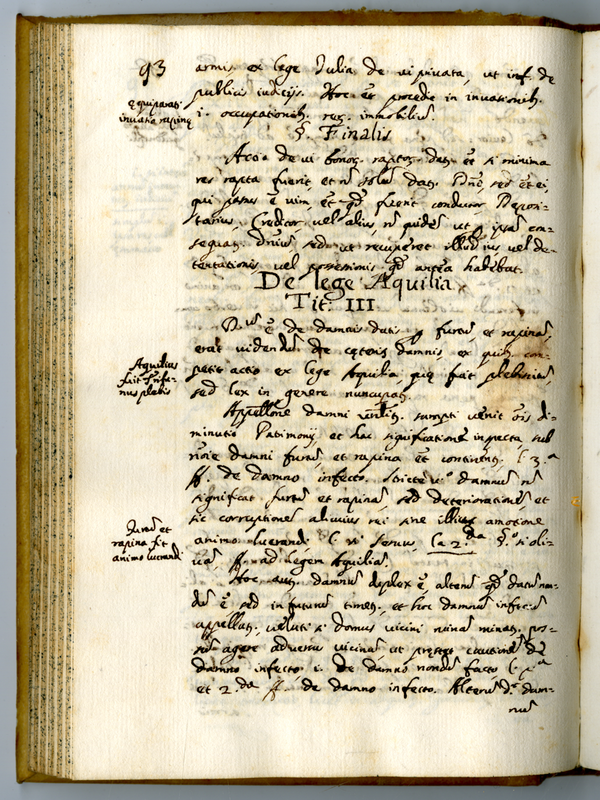 93
armis ex lege Julia de vi privata, ut inf. de
publicis iudicijs. Hoc et procedit in invationib.
i. occupationib. rer. immobiliū.
equiparati
invatio rapinę
§. Finalis
Actio de vi bonor. raptor. dat. et si minima
res rapta fuerit, et nō solū dat. Dn̄o, sed et ei,
qui passus ē vim, et fuerit conductor Deposi-
tarius, Creditor vel alius, nō quidē ut ipsam con-
sequat. sed ut recuperet illud ius vel de-
tentationis vel possessionis qd antea habebat.
De lege Aquilia
Tit: III
ē de damnis datis furtū, et rapinā,
erat videndū de cęteris damnis, ex quib. com-
petit actio ex lege Aquilia, quę fuit plebiscitū,
sed lex in genere nuncupat.
Aquilius
fuit
plebis
Appellōne damni sumpti venit di-
minutio Patrimonij, et hac significatione inspecta, sub
damni furtū, et rapina et continent. l. 3.a
ff. de damno infecto. stricte v.o damnum nō
significat furtū et rapinā, sed deterioratione et
sic corruptione alicuius rei sine illius amotione
animo lucrandi l. si servus, l.a 2.da §.o si oli-
vā ff. ad legem Aquiliā.
Furtū et
rapina fit
animo lucrandi
Hoc aut. damnū duplex ē, alterū qd datū non-
dū ē sed in futurū timet., et hoc damnū infectū
appellat., veluti si domus vicini ruinā minat. pos-
sū agere adversus vicinū ut prestet cautionē de
damno infecto i. de damno nondū facto l. p.a
et 2.da ff. de damno infecto. Alterū d. dam-
nū